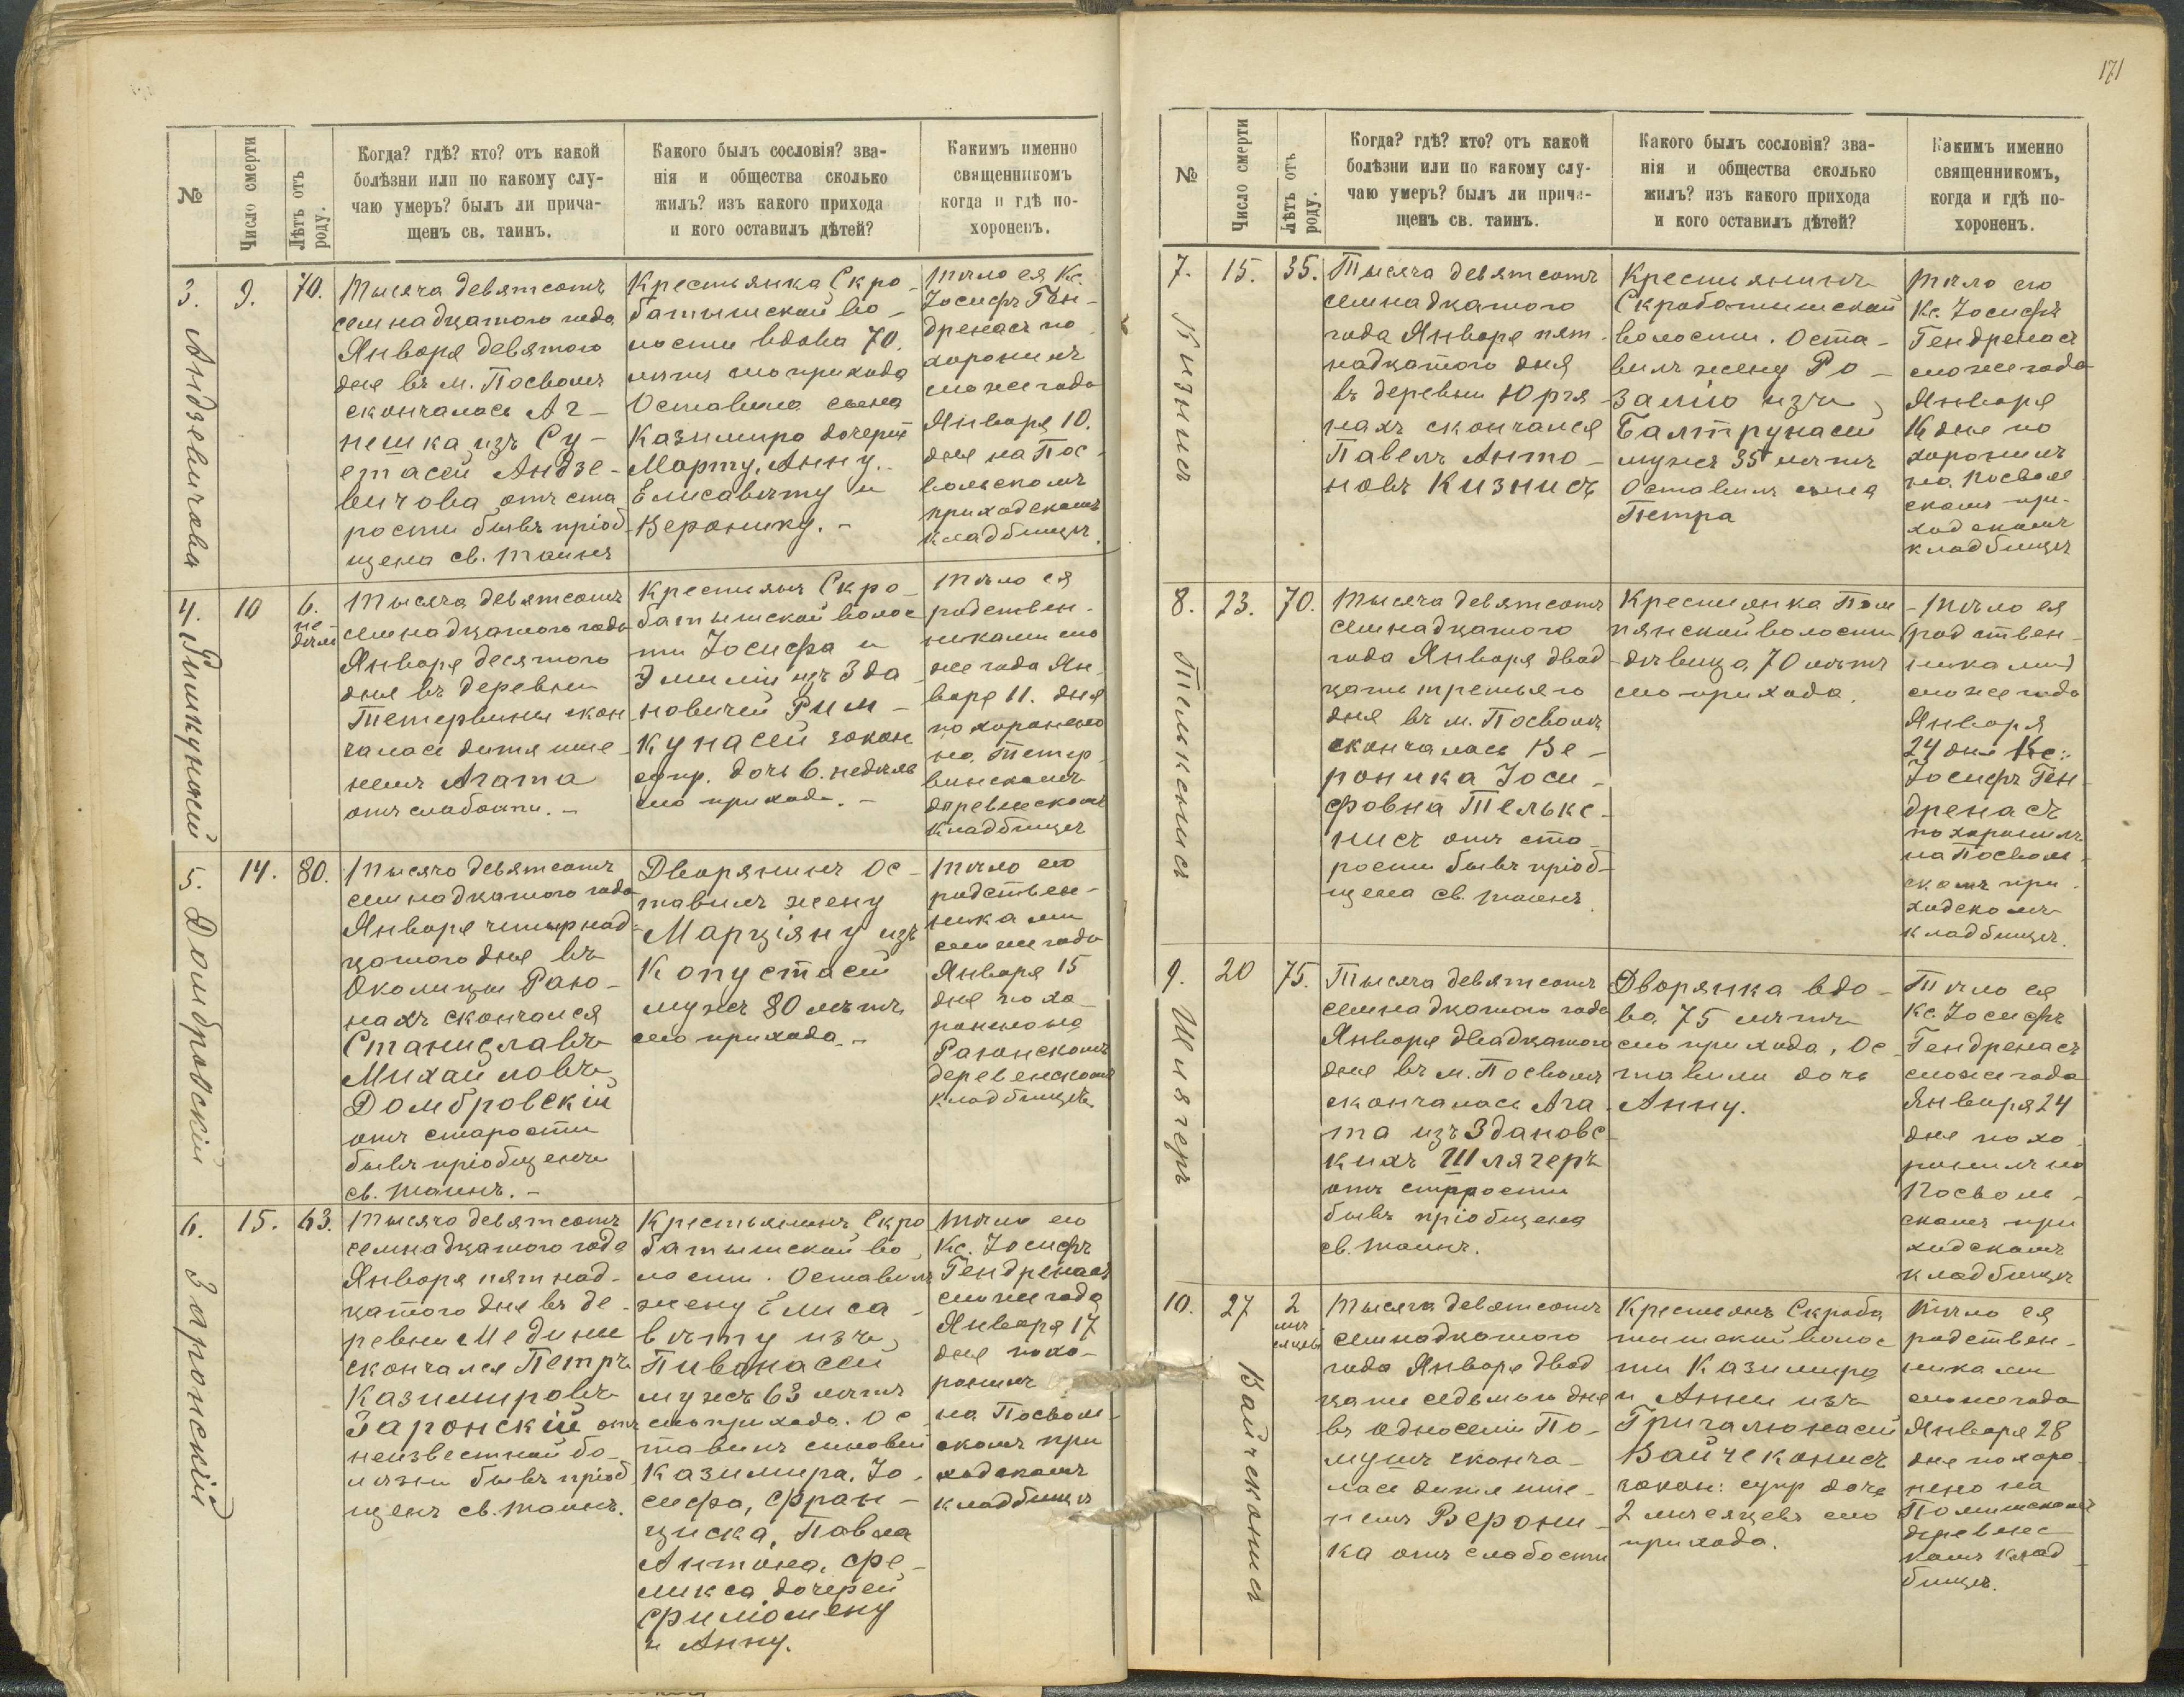 №
Число смерти
Лѣтъ отъ роду.
Когда? гдѣ? кто? отъ какой
болѣзни или по какому слу-
чаю умеръ? былъ ли прича-
щенъ св. таинъ.
Какого былъ сословія? зва-
нія и общества сколько
жилъ? изъ какого прихода
и кого оставилъ дѣтей?
Какимъ именно
священникомъ
когда и гдѣ по-
хороненъ.
3. Андзевичова
9.
70.
Тысяча девятсотъ
семнадцатого года
Января девятого
дня въ м. Посволѣ
скончалась Аг-
нешка изъ Су-
етасей Андзе-
вичова отъ ста
рости бывъ пріоб
щена св. таинъ
Крестьянка Скро-
батышской во-
лости вдова 70.
лѣтъ сего прихода
Оставила сына
Казимира дочерей
Марту, Анну,
Елисавѣту и
Веронику. -
Тѣло ея Кс.
Іосифъ Ген-
дренасъ по
хоронилъ
сего же года
Января 10.
дня на Пос-
вольскомъ
приходскомъ
кладбищѣ.
4. Римкунасъ
10
6.
не-
дѣли
Тысяча девятсотъ
семнадцатого года
Января десятого
дня въ деревни
Тетервины скон
чалась дитя име-
немъ Агата
отъ слабости. -
Крестьянъ Скро-
батышской волос
ти Іосифа и
Эмиліи изъ Зда
новичей Рим-
кунасей закон
супр. дочь 6. недѣль
сего прихода. -
Тѣло ея
родствен-
никами сего
же года Ян-
варя 11. дня
похоронено
на Тетер-
винскомъ
деревенскомъ
кладбищѣ
5. Домбровскій
14.
80.
Тысяча девятсотъ
семнадцатого года
Января четырнад-
цатого дня въ
Околицы Раю-
нахъ скончался
Станиславъ
Михайловъ
Домбровскій
отъ старости
бывъ пріобщенъ
св. таинъ. -
Дворянинъ Ос-
тавилъ жену
Марціяну изъ
Копустасей
мужъ 80 лѣтъ
сего прихода. -
Тѣло его
родствен-
никами
сего же года
Января 15
дня похо-
ронено на
Раюнскомъ
деревенскомъ
кладбищѣ.
6. Заронскій
15.
63.
Тысяча девятсотъ
семнадцатого года
Января пятнад-
цатого дня въ де-
ревни Медини
скончался Петръ
Казимировъ
Заронскій отъ
неизвестной бо-
лѣзни бывъ пріоб
щенъ св. таинъ.
Крестьянинъ Скро
батышской во-
лости. Оставилъ
жену Елиса-
вѣту изъ
Пивонасей
мужъ 63 лѣтъ
сего прихода. Ос-
тавилъ сыновей
Казимира, Іо-
сифа, Фран-
циска, Павла
Антона, Фе-
ликса, дочерей
Филіомену
и Анну.
Тѣло его
Кс. Іосифъ
Гендренасъ
сего же года
Января 17
дня похо-
ронилъ
на Посволь-
скомъ при
ходскомъ
кладбищѣ
171
№
Число смерти
Лѣтъ отъ роду.
Когда? гдѣ? кто? отъ какой
болѣзни или по какому слу-
чаю умеръ? былъ ли прича-
щенъ св. таинъ.
Какого былъ сословія? зва-
нія и общества сколько
жилъ? изъ какого прихода
и кого оставилъ дѣтей?
Какимъ именно
священникомъ,
когда и гдѣ по-
хороненъ.
7. Кизнисъ
15.
35.
Тысяча девятсотъ
семнадцатого
года Января пят-
надцатого дня
въ деревни Юргя
нахъ скончался
Павелъ Анто-
новъ Кизнисъ
Крестьянинъ
Скробатишской
волости. Оста-
вилъ жену Ро-
залію изъ
Балтрунасей
мужъ 35 лѣтъ
Оставилъ сына
Петра
Тѣло его
Кс. Іосифъ
Гендренасъ
сего же года
Января
16 дня по
хоронилъ
на Посволь
скомъ при-
ходскомъ
кладбищѣ
8. Телькснисъ
23.
70.
Тысяча девятсотъ
семнадцатого
года Января двад-
цать третьяго
дня въ м. Посволѣ
скончалась Ве-
роника Іоси-
фовна Телькс-
нисъ отъ ста-
рости бывъ пріоб-
щена св. таинъ.
Крестьянка Пом
пянской волости
дѣвица 70 лѣтъ
сего прихода.
Тѣло ея
(родствен-
никами)
сего же года
Января
24 дня Кс:
Іосифъ Ген-
дренасъ
похоронилъ
на Посволь-
скомъ при-
ходскомъ
кладбищѣ.
9. Шлягеръ
20
75.
Тысяча девятсотъ
семнадцатого года
Января двадцатого
дня въ м. Посволѣ
скончалась Ага-
та изъ Здановс-
кихъ Шлягеръ
отъ старости
бывъ пріобщена
св. таинъ.
Дворянка вдо-
ва 75 лѣтъ
сего прихода, Ос-
тавили дочь
Анну.
Тѣло ея
Кс. Іосифъ
Гендренасъ
сего же года
Января 24
дня похо
ронилъ на
Посволь-
скомъ при
ходскомъ
кладбищѣ
10. Вайчеконисъ
27
2
мѣ-
сяцевъ
Тысяча девятсотъ
семнадцатого
года Января двад
цать седьмого дня
въ односеліи По-
мушѣ сконча-
лась дитя име-
немъ Верони-
ка отъ слабости
Крестьянъ Скроба
тишской волос
ти Казимира
и Анны изъ
Григалюнасей
Вайчеконисъ
закон: супр дочь
2 мѣсяцевъ сего
прихода.
Тѣло ея
родствен-
никами
сего же года
Января 28
дня похоро-
нено на
деревенс
комъ клад
бищѣ.